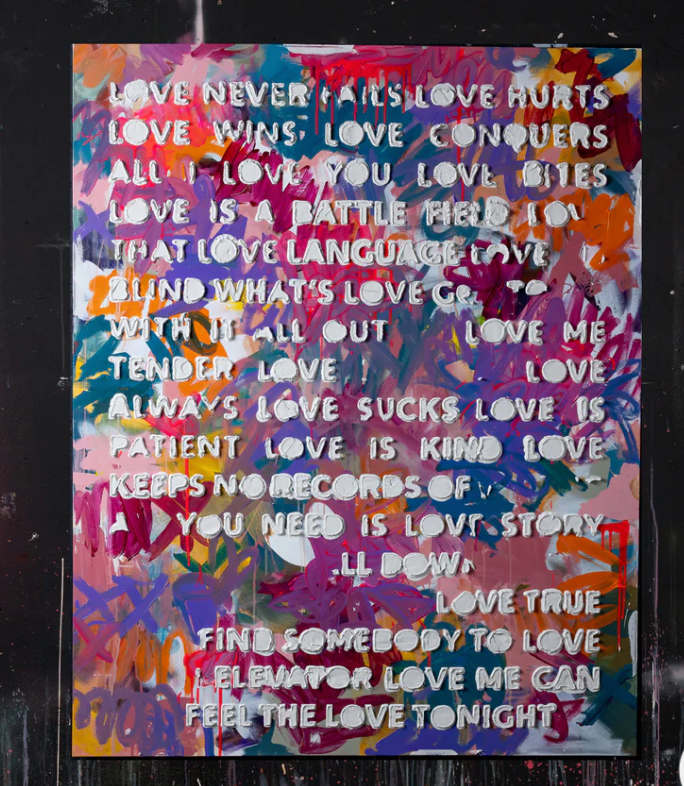 LOVE NEVER FAILS LOVE HURTS
LOVE WINS LOVE CONQUERS
ALL I LOVE YOU LOVE BITES
LOVE IS A BATTLE FIELD
THAT LOVE LANGUAGE LOVE
BLIND WHAT'S LOVE TO
WITH IT ALL OUT LOVE ME
TENDER LOVE LOVE
ALWAYS LOVE SUCKS LOVE IS
PATIENT LOVE IS KIND LOVE
KEEPS NO RECORDS OF
YOU NEED IS LOVE STORY
DOWN
LOVE TRUE
FIND SOMEBODY TO LOVE
ELEVATOR LOVE ME CAN
FEEL THE LOVE TONIGHT